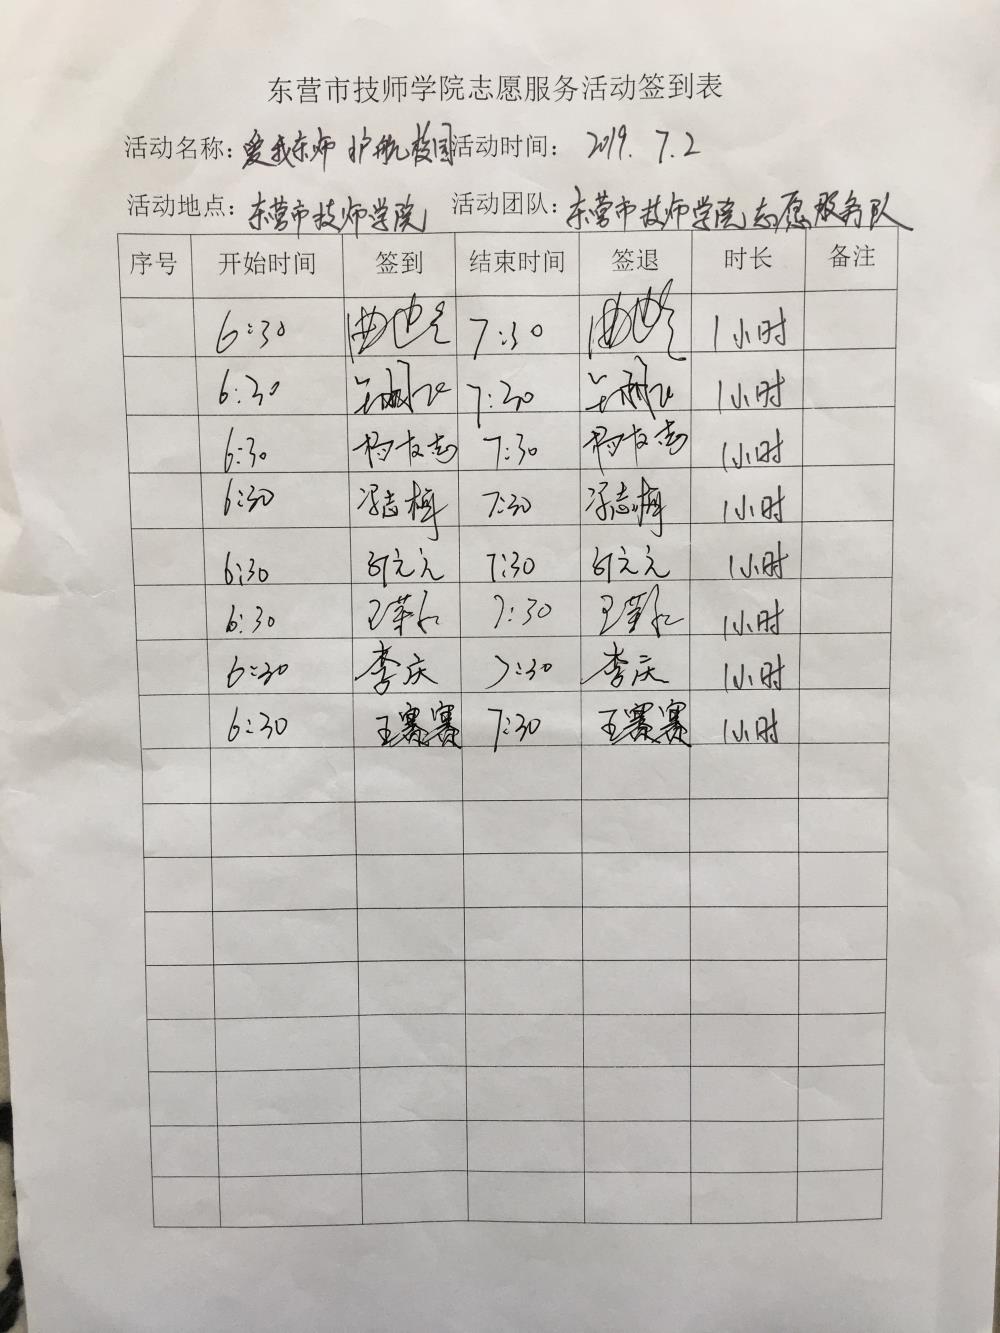 东营市技师学院志愿服务活动签到表
活动名称：爱我东师 护航校园 活动时间： 2019.7.2
活动地点：东营市技师学院 活动团队：东营市技师学院志愿服务队
序号 开始时间 签到 结束时间 签退 时长 备注
6:30 7:30 1小时
6:30 7:30 1小时
6:30 杨友志 7:30 杨友志 1小时
6:30 冯志梅 7:30 冯志梅 1小时
6:30 元元 7:30 元元 1小时
6:30 王 7:30 王 1小时
6:30 李庆 7:30 李庆 1小时
6:30 王赛赛 7:30 王赛赛 1小时